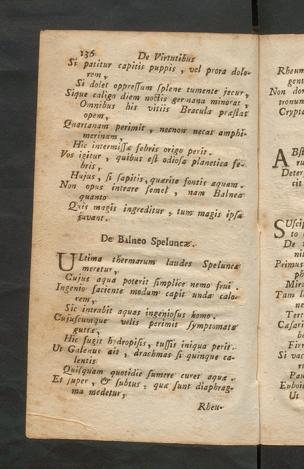 136 De Virtutibus
Si patitur capitis puppis, vel prora dolo-
rem,
Si dolet oppressum splene tumente jecur,
Sique caligo diem noctis germana minatur,
Omnibus his vitiis Bracula præstat
opem,
Quartanam perimit, necnon necat amphi-
merinam,
Hic intermissæ febris origo perit.
Vos igitur, quibus est odiosa planetica fe-
bris,
Hujus, si sapitis, quærite fontis aquam.
Non opus intrare semel, nam Balnea
quanto
Quis magis ingreditur, tum magis ipsa
juvant.
De Balneo Speluncæ.
ULtima thermarum laudes Spelunca
meretur,
Cujus aqua poterit simplice nemo frui.
Ingenio faciente modum capit unda calo-
rem,
Sic intrabit aquas ingeniosus homo.
Cujuscunque velis perimit symptomata
guttæ,
Hic fugit hydropisis, tussis iniqua perit.
Ut Galenus ait, drachmas si quinque ca-
lentis
Quisquam quotidie sumere curet aquæ.
Et super, & subtus, quæ sunt diaphrag-
ma medetur,
Rheu-
Rheum
gent
Non do
tronum
Crypta
A
Deter
cit
De
Primus
phi
Mira
Tam
ne
Tert
Casari
bo
Fir
Si vac
ri
Pau
Euboi
Ut